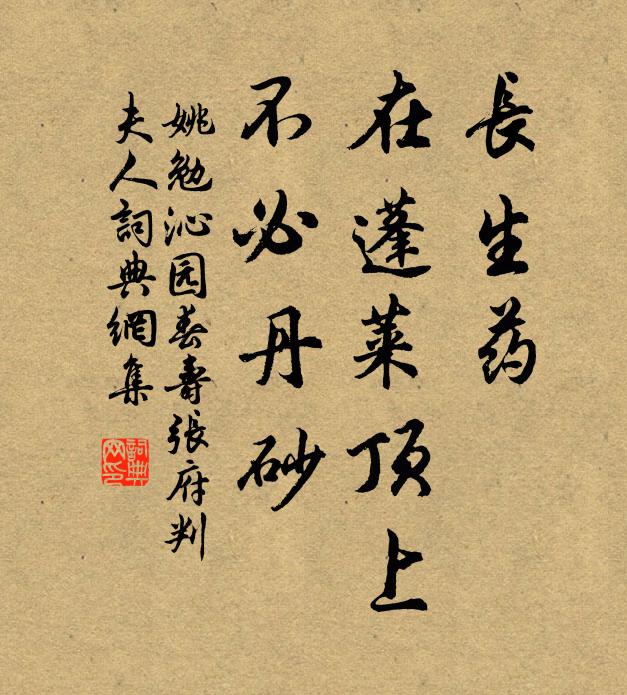 長生药
在蓬莱顶上
不必丹砂
姚勉沁园春壽張府判
夫人詞典網集
詞典网印